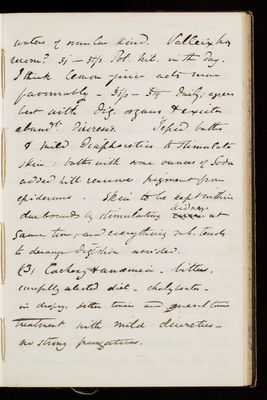 waters of similar kind. Valleix
recom.ᵈ ʒi – ʒifs Pot. Nit. in the day.
I think Lemon-juice acts more
favourably – ʒifs – ʒiij daily, agrees
best with dig. organs & excites
abund.ᵗ diuresis. Tepid baths
& mild diaphoretics to stimulate
skin: baths with some ounces of Soda
added will remove pigment from
epidermis. Skin to be kept within
due bounds by stimulating kidneys at
same time, and everything wh. tends
to derange digestion avoided.
(3) Cachexy & anaemia. bitters.
carefully selected diet – chalybeates –
in dropsy, bitter tonics and general tonic
treatment with mild diuretics –
no strong purgatives.